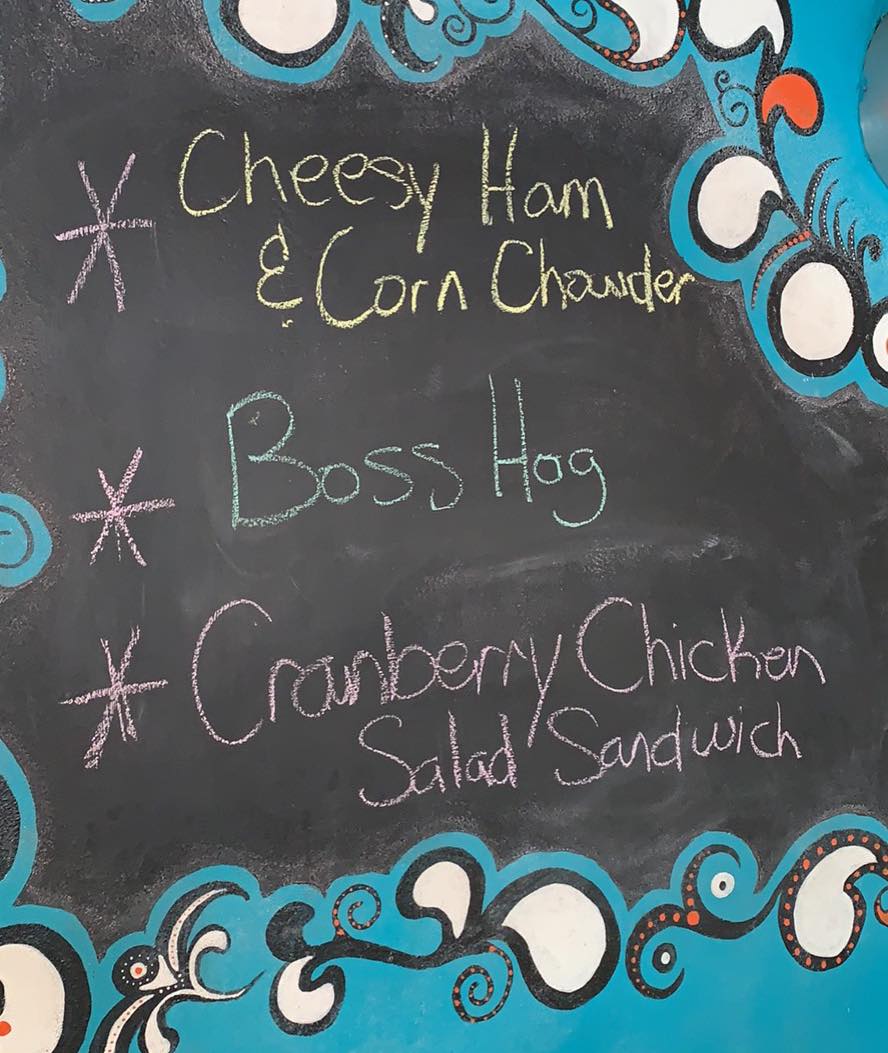 * Cheesy Ham
& Corn Chowder
* Boss Hog
* Cranberry Chicken
Salad Sandwich